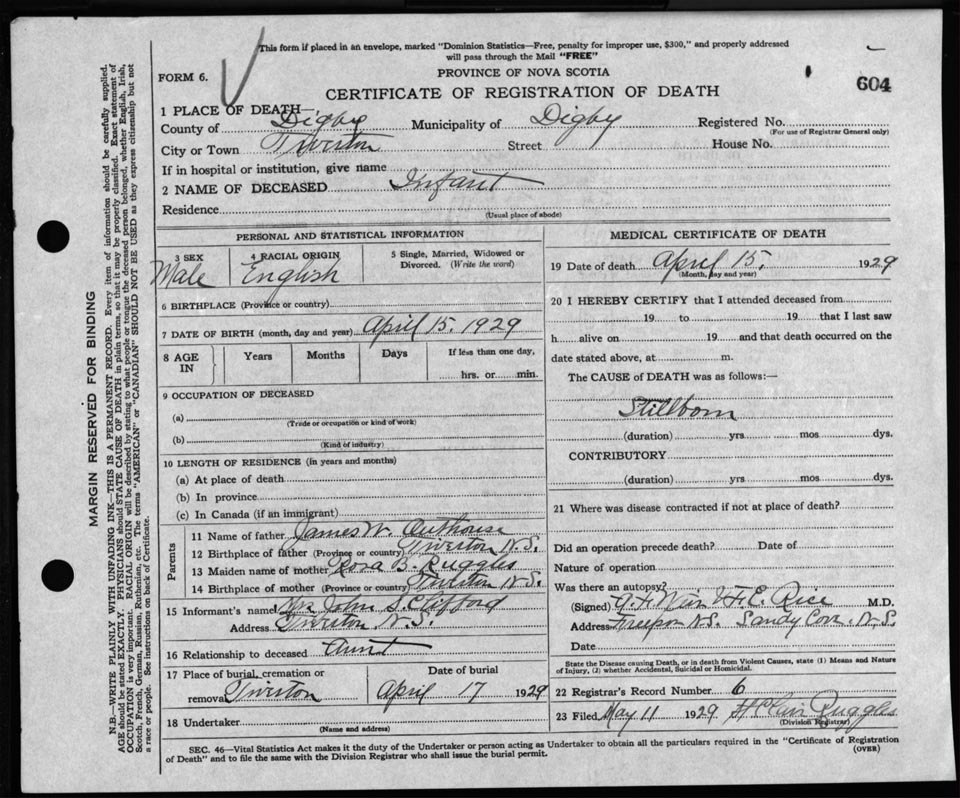 This form if placed in an envelope, marked "Dominion Statistics—Free, penalty for improper use, $300," and properly addressed
will pass through the Mail "FREE"
FORM 6.
PROVINCE OF NOVA SCOTIA
604
CERTIFICATE OF REGISTRATION OF DEATH
1 PLACE OF DEATH—
County of Digby Municipality of Digby Registered No.
(For use of Registrar General only)
City or Town Tiverton Street House No.
If in hospital or institution, give name
2 NAME OF DECEASED Infant
Residence
(Usual place of abode)
PERSONAL AND STATISTICAL INFORMATION
3 SEX 4 RACIAL ORIGIN 5 Single, Married, Widowed or
Divorced. (Write the word)
Male English
6 BIRTHPLACE (Province or country)
7 DATE OF BIRTH (month, day and year) April 15. 1929
8 AGE IN Years Months Days If less than one day,
hrs. or min.
9 OCCUPATION OF DECEASED
(a)
(Trade or occupation or kind of work)
(b)
(Kind of industry)
10 LENGTH OF RESIDENCE (in years and months)
(a) At place of death
(b) In province
(c) In Canada (if an immigrant)
Parents
11 Name of father James W. Outhouse
12 Birthplace of father (Province or country) Tiverton N.S.
13 Maiden name of mother Rosa B. Ruggles
14 Birthplace of mother (Province or country) Tiverton N.S.
15 Informant's name Mrs John S. Clifford
Address Tiverton N.S.
16 Relationship to deceased Aunt
17 Place of burial, cremation or Date of burial
removal Tiverton April 17 1929
18 Undertaker
(Name and address)
MEDICAL CERTIFICATE OF DEATH
19 Date of death April 15. 1929
(Month, day and year)
20 I HEREBY CERTIFY that I attended deceased from
19 to 19 that I last saw
h alive on 19 and that death occurred on the
date stated above, at m.
The CAUSE of DEATH was as follows:—
Stillborn
(duration) yrs mos dys.
CONTRIBUTORY
(duration) yrs mos dys.
21 Where was disease contracted if not at place of death?
Did an operation precede death? Date of
Nature of operation
Was there an autopsy?
(Signed) F. E. Rice M.D.
Address Freeport N.S. Sandy Cove. N.S.
Date
State the Disease causing Death, or in death from Violent Causes, state (1) Means and Nature
of Injury, (2) whether Accidental, Suicidal or Homicidal.
22 Registrar's Record Number 6
23 Filed May 11 1929 Ruggles
(Division Registrar)
SEC. 46—Vital Statistics Act makes it the duty of the Undertaker or person acting as Undertaker to obtain all the particulars required in the "Certificate of Registration
of Death" and to file the same with the Division Registrar who shall issue the burial permit.
(OVER)
MARGIN RESERVED FOR BINDING
N.B.—WRITE PLAINLY WITH UNFADING INK—THIS IS A PERMANENT RECORD. Every item of information should be carefully supplied.
AGE should be stated EXACTLY. PHYSICIANS should STATE CAUSE OF DEATH in plain terms, so that it may be properly classified. Exact statement of
OCCUPATION is very important. RACIAL ORIGIN will be described by stating to what people or tongue the deceased person belonged, whether English, Irish,
Scotch, French, German, Russian, Ruthenian, etc. The terms "AMERICAN" or "CANADIAN" SHOULD NOT BE USED as they express citizenship but not
a race or people. See instructions on back of Certificate.